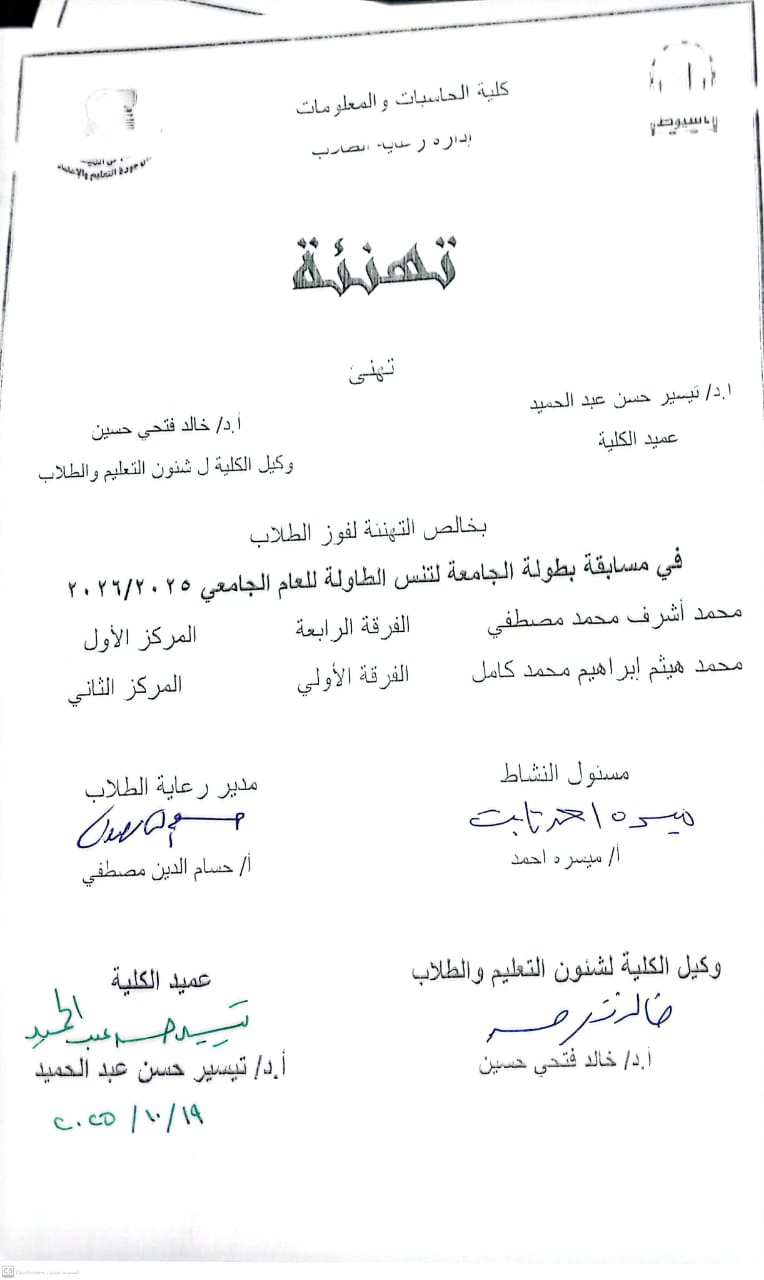 كلية الحاسبات والمعلومات
إدارة رعاية الطلاب
أسيوط
تهنئة
تهنئ
ا.د/ تيسير حسن عبد الحميد
عميد الكلية
أ.د/ خالد فتحي حسين
وكيل الكلية ل شئون التعليم والطلاب
بخالص التهنئة لفوز الطلاب
في مسابقة بطولة الجامعة لتنس الطاولة للعام الجامعي ٢٠٢٦/٢٠٢٥
محمد أشرف محمد مصطفي الفرقة الرابعة المركز الأول
محمد هيثم إبراهيم محمد كامل الفرقة الأولي المركز الثاني
مسئول النشاط
ميسره احمد ثابت
أ/ ميسره احمد
مدير رعاية الطلاب
أ/ حسام الدين مصطفي
وكيل الكلية لشئون التعليم والطلاب
أ.د/ خالد فتحي حسين
عميد الكلية
تيسير حسن عبد الحميد
أ.د/ تيسير حسن عبد الحميد
٢٠٢٥/١٠/١٩